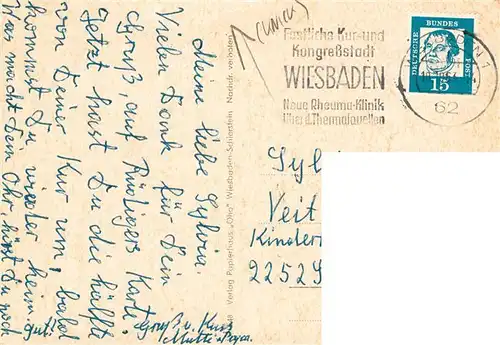 Meine liebe Sylvia.
Vielen Dank für Dein
Gruß auf Rüdigers Karte.
Jetzt hast Du die hälfte
von Deiner Kur um, bald
kommst Du wieder heim.
Was macht Dein Ohr, hörst Du noch
gut!
Gruß u. Kuss
Mutti Papa.
Verlag Papierhaus „Ota" Wiesbaden-Schierstein Nachdr. verboten
Festliche Kur- und
Kongreßstadt
WIESBADEN
Neue Rheuma-Klinik
über d. Thermalquellen
62
DEUTSCHE BUNDESPOST
15
Sylvi
Veit
Kinder
2252 S